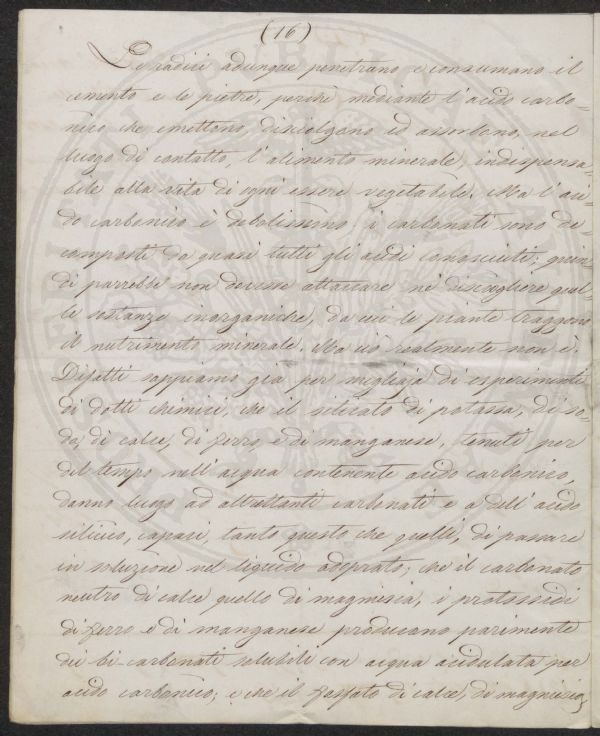 (16)
Le radici adunque penetrano e consumano il
cemento e le pietre, perchè mediante l'acido carbo-
nico che emettono, disciolgono ed assorbono, nel
luogo di contatto, l'alimento minerale, indispensa-
bile alla vita di ogni essere vegetabile. Ma l'aci-
do carbonico è debolissimo; i carbonati sono de-
composti da quasi tutti gli acidi conosciuti: quin-
di parrebbe non dovesse attaccare nè disciogliere quel-
le sostanze inorganiche, da cui le piante traggono
il nutrimento minerale. Ma ciò realmente non è.
Difatti sappiamo già per migliaja di esperimenti
di dotti chimici, che il silicato di potassa, di so-
da, di calce, di ferro e di manganese, tenuti per
del tempo nell'acqua contenente acido carbonico,
danno luogo ad altrettanti carbonati e a dell'acido
silicico, capaci, tanto questo che quelli, di passare
in soluzione nel liquido adoprato; che il carbonato
neutro di calce quello di magnesia, i protossidi
di ferro e di manganese producono parimente
dei bi-carbonati solubili con acqua acidulata per
acido carbonico; e che il fosfato di calce, di magnesia,